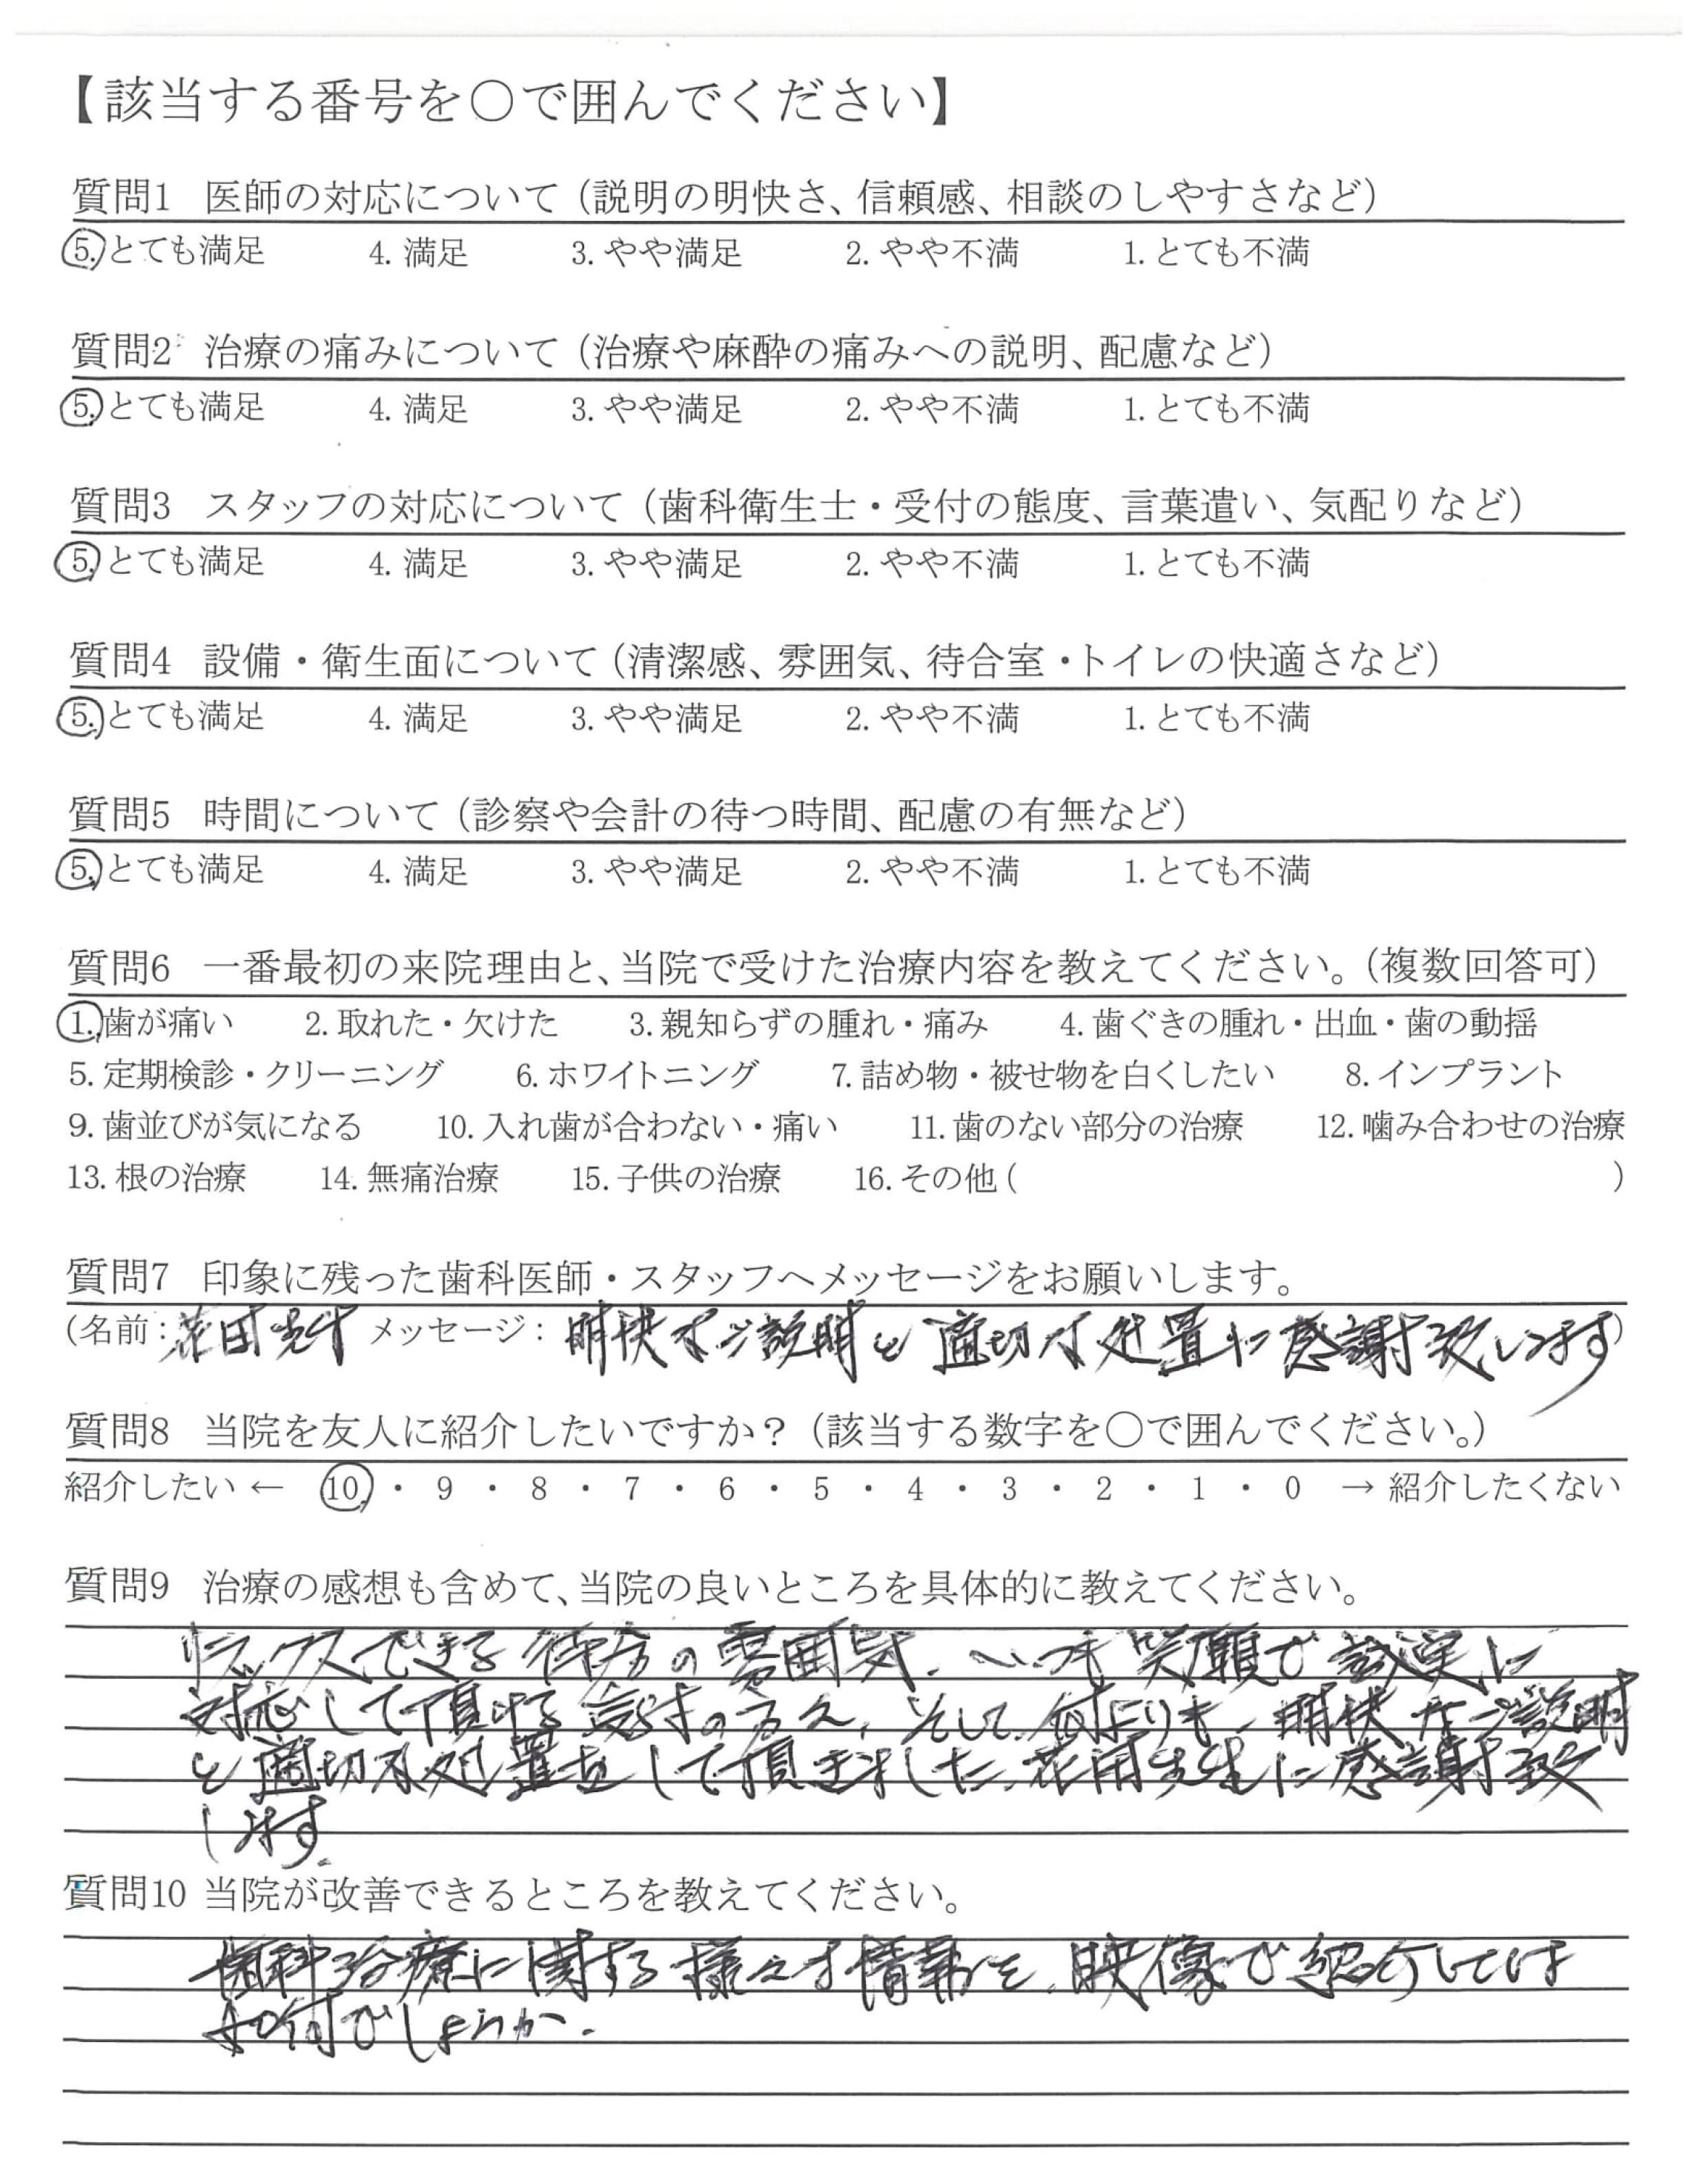 【該当する番号を○で囲んでください】
質問1 医師の対応について（説明の明快さ、信頼感、相談のしやすさなど）
5.とても満足 4.満足 3.やや満足 2.やや不満 1.とても不満
質問2 治療の痛みについて（治療や麻酔の痛みへの説明、配慮など）
5.とても満足 4.満足 3.やや満足 2.やや不満 1.とても不満
質問3 スタッフの対応について（歯科衛生士・受付の態度、言葉遣い、気配りなど）
5.とても満足 4.満足 3.やや満足 2.やや不満 1.とても不満
質問4 設備・衛生面について（清潔感、雰囲気、待合室・トイレの快適さなど）
5.とても満足 4.満足 3.やや満足 2.やや不満 1.とても不満
質問5 時間について（診察や会計の待つ時間、配慮の有無など）
5.とても満足 4.満足 3.やや満足 2.やや不満 1.とても不満
質問6 一番最初の来院理由と、当院で受けた治療内容を教えてください。（複数回答可）
1.歯が痛い 2.取れた・欠けた 3.親知らずの腫れ・痛み 4.歯ぐきの腫れ・出血・歯の動揺
5.定期検診・クリーニング 6.ホワイトニング 7.詰め物・被せ物を白くしたい 8.インプラント
9.歯並びが気になる 10.入れ歯が合わない・痛い 11.歯のない部分の治療 12.噛み合わせの治療
13.根の治療 14.無痛治療 15.子供の治療 16.その他（ ）
質問7 印象に残った歯科医師・スタッフへメッセージをお願いします。
（名前：花田 メッセージ：明快なご説明と適切な処置に感謝致します）
質問8 当院を友人に紹介したいですか？（該当する数字を○で囲んでください。）
紹介したい ← 10 ・ 9 ・ 8 ・ 7 ・ 6 ・ 5 ・ 4 ・ 3 ・ 2 ・ 1 ・ 0 → 紹介したくない
質問9 治療の感想も含めて、当院の良いところを具体的に教えてください。
リラックスできる の雰囲気、いつも笑顔で誠実に
対応して頂ける の方々、そして何よりも、明快なご説明
と適切な処置をして頂きました、花田先生に感謝致
します。
質問10 当院が改善できるところを教えてください。
歯科治療に関する様々な情報を、映像で紹介しては
如何でしょうか。